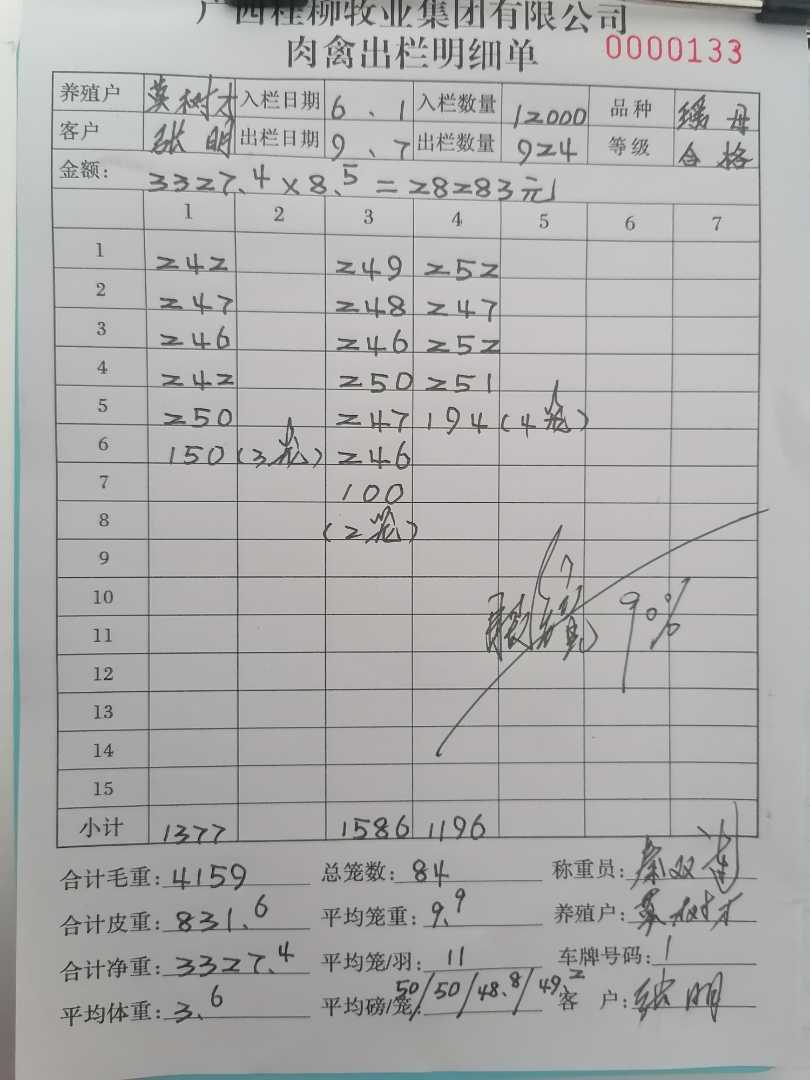 广西桂柳牧业集团有限公司
肉禽出栏明细单 0000133
养殖户 莫树才 入栏日期 6、1 入栏数量 12000 品种 瑶母
客户 张明 出栏日期 9、7 出栏数量 924 等级 合格
金额: 3327.4×8.5=28283元
1 2 3 4 5 6 7
1 242 249 252
2 247 248 247
3 246 246 252
4 242 250 251
5 250 247 194(4笼)
6 150(3笼) 246
7 100
8 (2笼)
9
10
11 90%
12
13
14
15
小计 1377 1586 1196
合计毛重: 4159 总笼数: 84 称重员:
合计皮重: 831.6 平均笼重: 9.9 养殖户: 莫树才
合计净重: 3327.4 平均笼/羽: 11 车牌号码: 1
平均体重: 3.6 平均磅/笼: 50/50/48.8/49.2 客 户: 张明